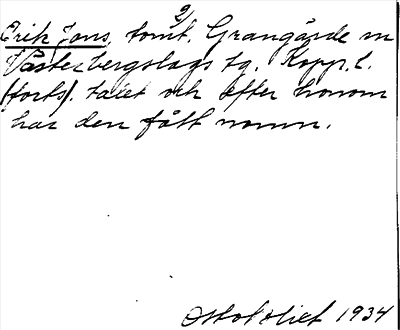 2/
Erik Jons, tomt. Grangärde sn
Västerbergslags tg. Kopp. l.
(forts). talet och efter honom
har den fått namn.
1934